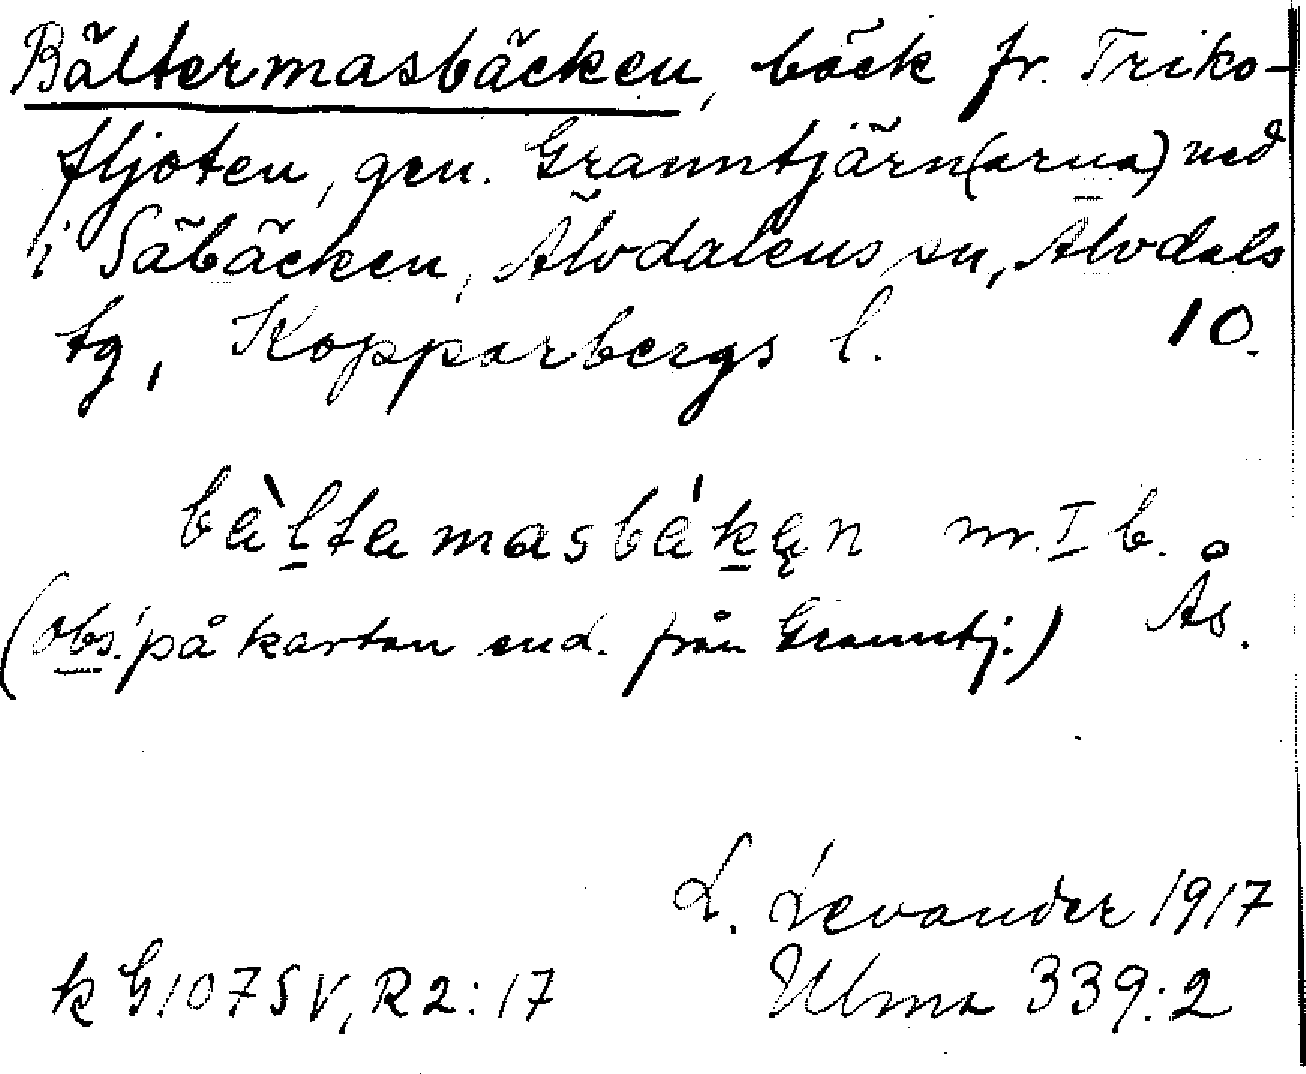 Bältermasbäcken, bäck fr. Triko-
fljoten, gen. Granntjärn(arna) ned
i Säbäcken, Älvdalens sn, Älvdals
tg, Kopparbergs l. 10.
bæ̀ltamasbǽkęn m. I b.
(obs! på kartan end. från Granntj.) Ås.
L. Levander 1917
k G107SV, R2:17 Ulma 339:2